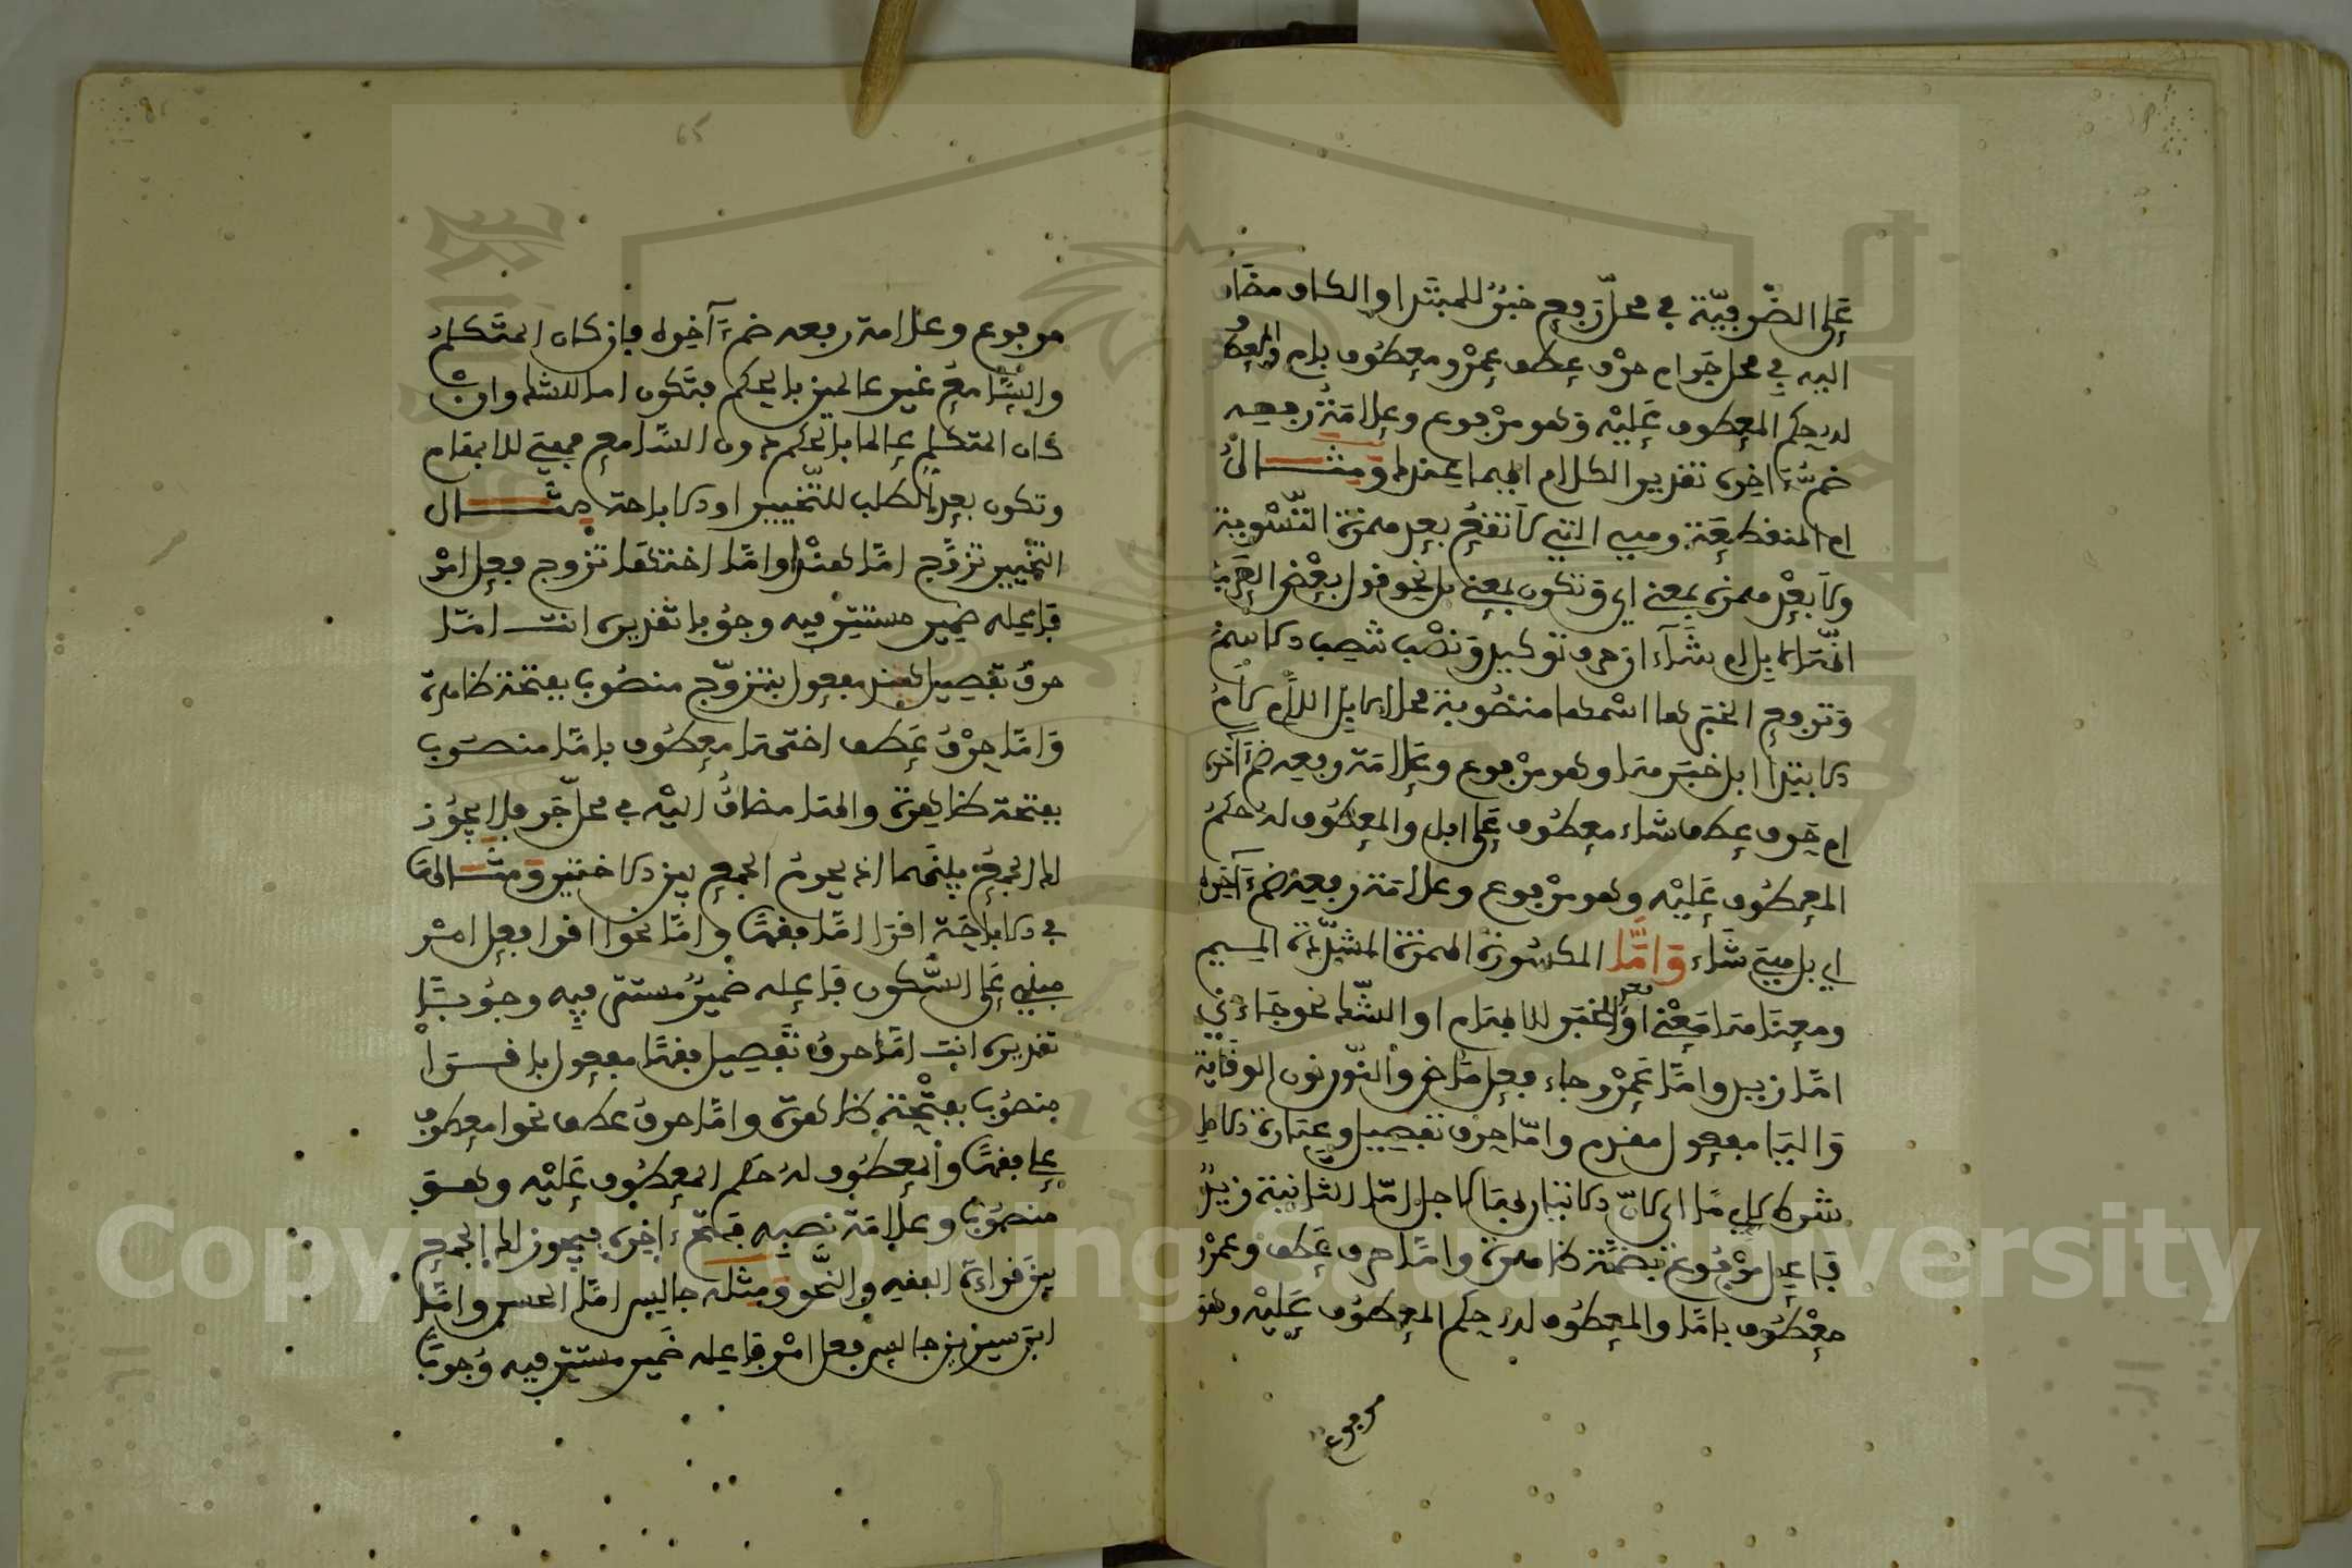 على الضرفية في محل رفع خبر للمبتدا والكاف مضاف
اليه في محل جر ام حرف عطف عمرو معطوف بام والمعطوف
له حكم المعطوف عليه وهو مرفوع وعلامة رفعه
ضمة اخره تقدير الكلام ايهما عندك ومثال
ام المنقطعة وهي التي لا تقع بعد همزة التسوية
ولا بعد همزة بمعنى اي وتكون بمعنى بل نحو قول بعض العرب
انها لابل ام شاء ان حرف توكيد ونصب تنصب الاسم
وترفع الخبر ها اسمها منصوبة محلا لابل اللام لام
الابتدا ابل خبرها وهو مرفوع وعلامة رفعه ضم اخره
ام حرف عطف شاء معطوف على ابل والمعطوف له حكم
المعطوف عليه وهو مرفوع وعلامة رفعه ضم آخره
اي بل هي شاء واما المكسورة الهمزة المشددة الميم
ومعناها معنى او بعد الخبر للابهام او الشك نحو جاءني
اما زيد واما عمرو جاء فعل ماض والنون نون الوقاية
واليا مفعول مقدم واما حرف تفصيل وعبارة
زيد
فاعل مرفوع بضمة ظاهرة واما حرف عطف وعمرو
معطوف باما والمعطوف له حكم المعطوف عليه وهو
مرفوع
65
مرفوع وعلامة رفعه ضم آخره فإن كان المتكلم
والسامع غير عالمين بالحكم فتكون اما للشك وان
كان المتكلم عالما بالحكم دون السامع فهي للابهام
وتكون بعد الطلب للتخيير او الاباحة مثال
التخيير تزوج اما هندا واما اختها تزوج فعل امر
فاعله ضمير مستتر فيه وجوبا تقديره انت اما
حرف تفصيل هند مفعول بتزوج منصوب بفتحة ظاهرة
واما حرف عطف اختها معطوف باما منصوب
بفتحة ظاهرة والها مضاف اليه في محل جر فلا يجوز
لك الجمع بينهما اذ يحرم الجمع بين الاختين ومثالها
في الاباحة اقرا اما فقها واما نحوا اقرا فعل امر
مبني على السكون فاعله ضمير مستتر فيه وجوبا
تقديره انت اما حرف تفصيل فقها مفعول باقرا
منصوب بفتحة ظاهرة واما حرف عطف نحوا معطوف
على فقها والمعطوف له حكم المعطوف عليه وهو
منصوب وعلامة نصبه فتح اخره فيجوز لك الجمع
بين قراءة الفقه والنحو ومثله جالس اما الحسن واما
ابن سيرين جالس فعل امر فاعله ضمير مستتر فيه وجوبا
Copyright © King Saud University